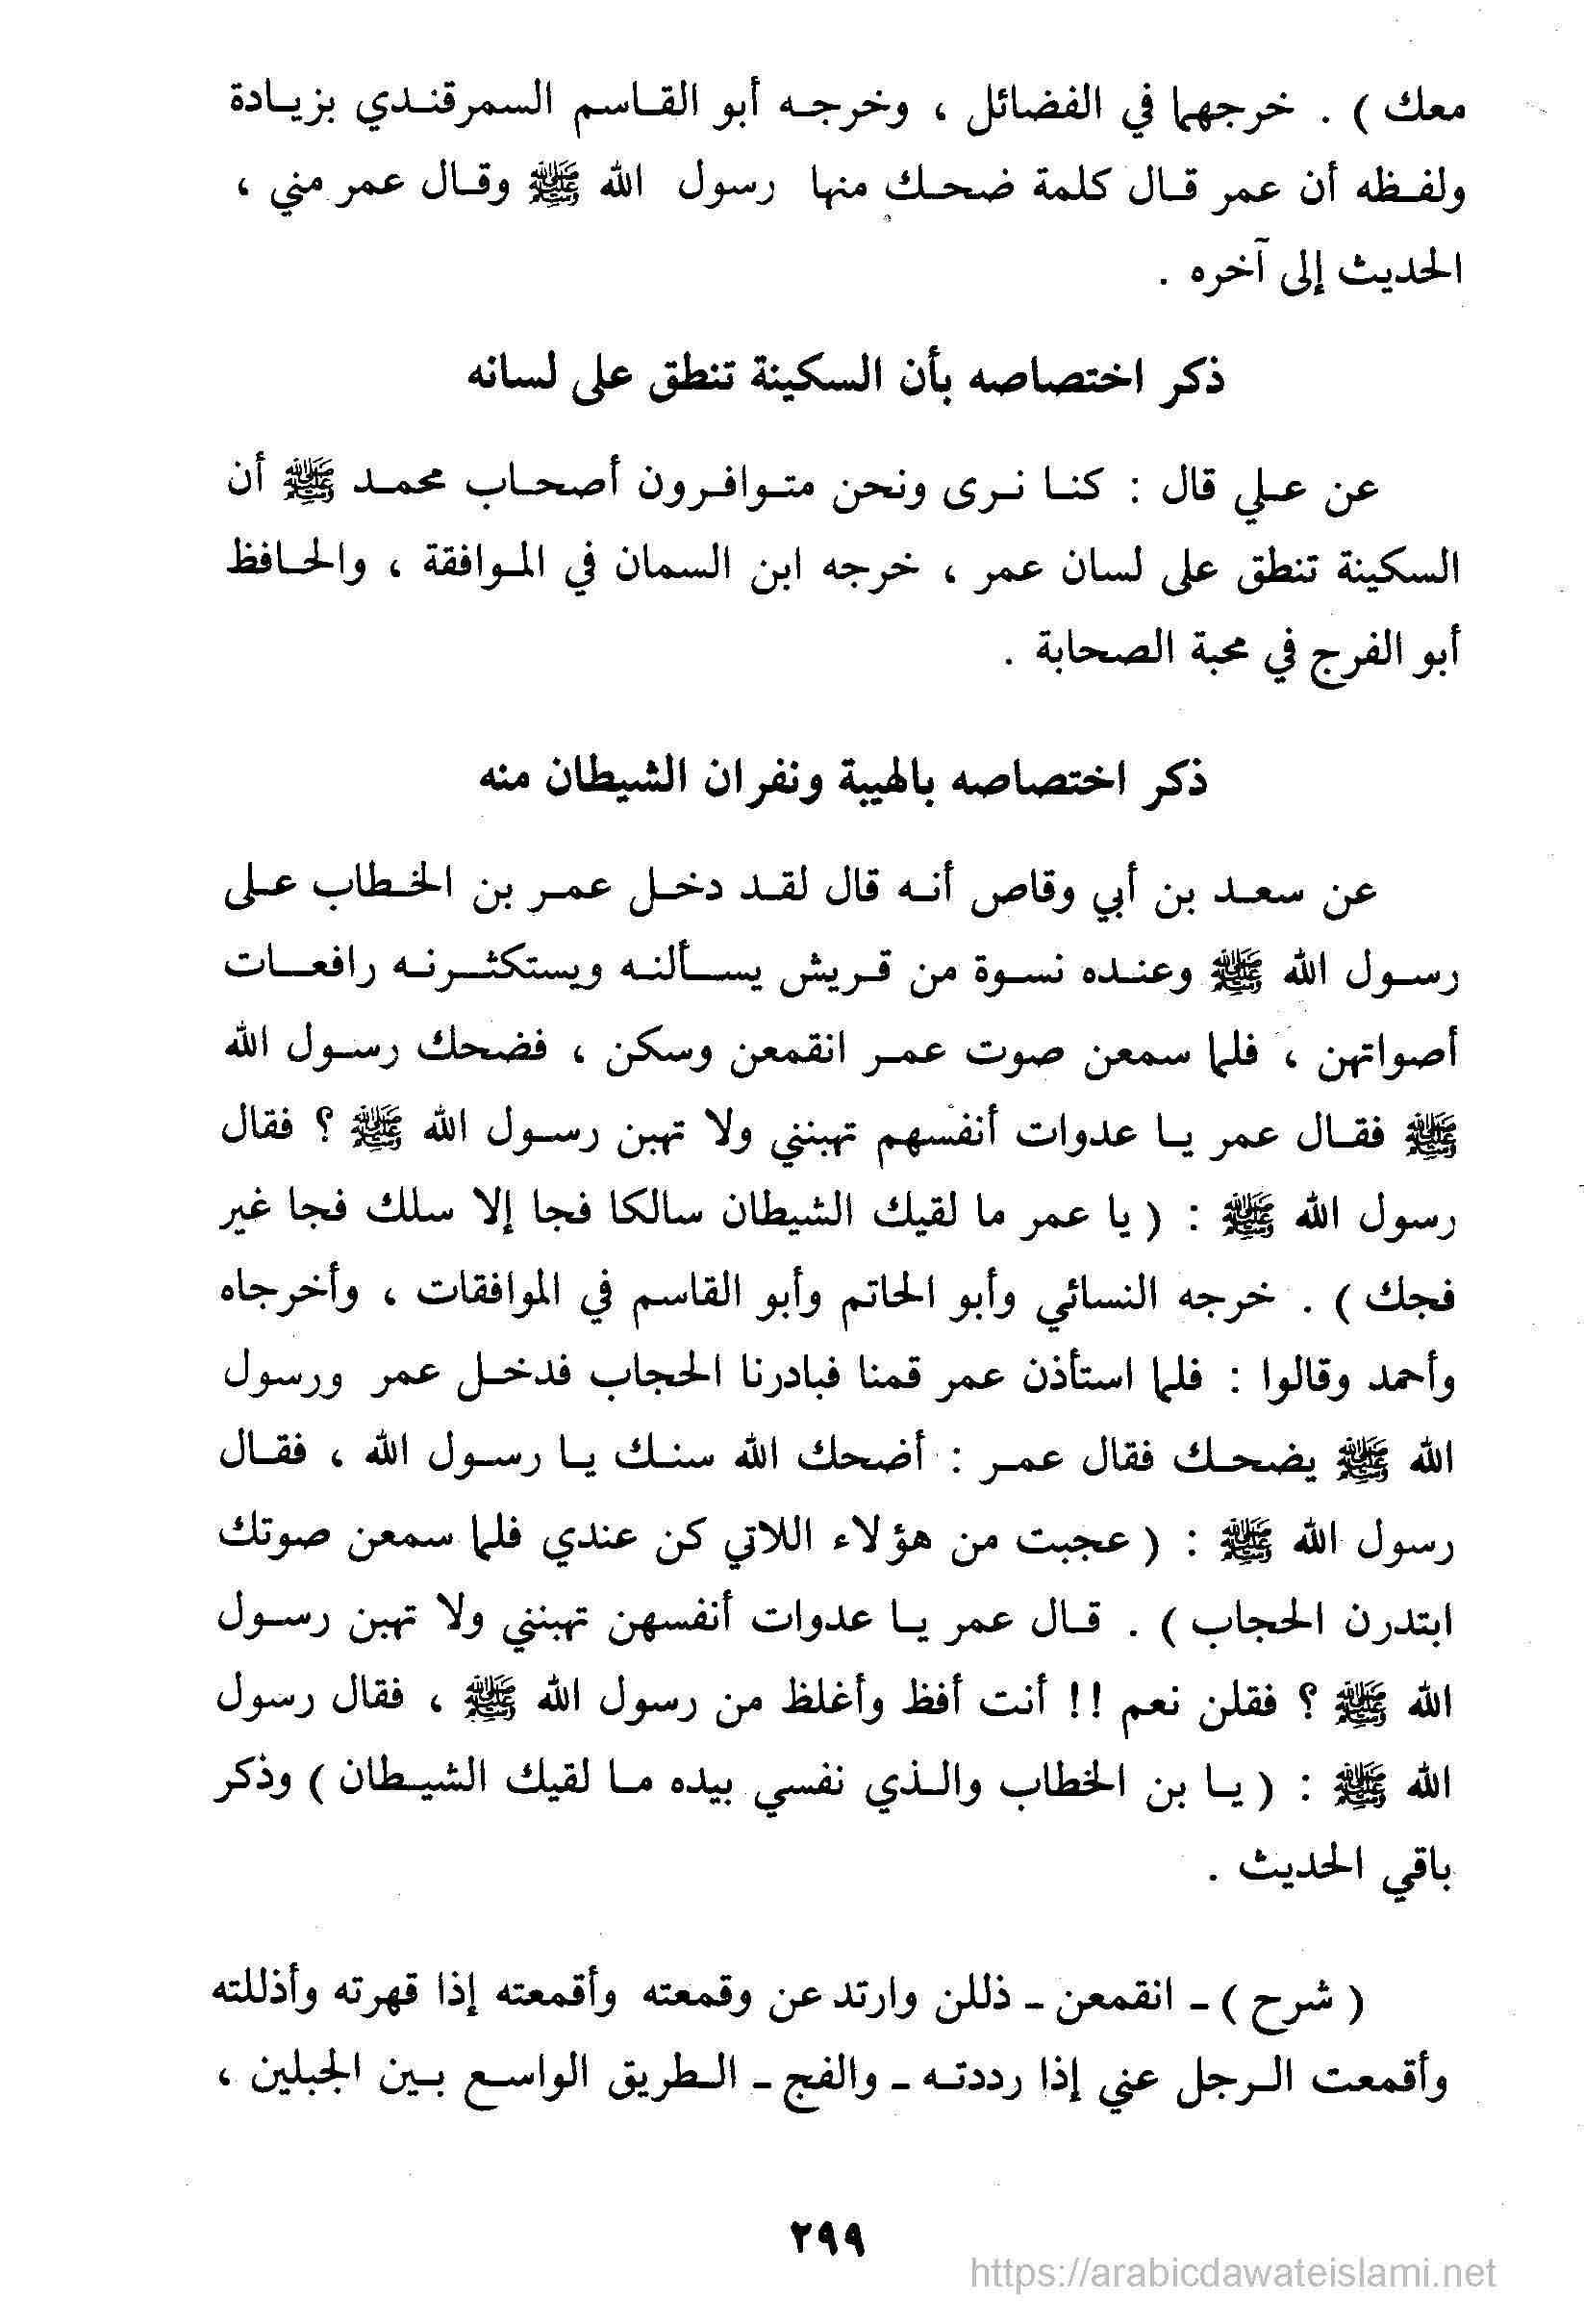 معك ) . خرجهما في الفضائل ، وخرجه أبو القاسم السمرقندي بزيادة
ولفظه أن عمر قال كلمة ضحك منها رسول الله ﷺ وقال عمر مني ،
الحديث إلى آخره .
ذكر اختصاصه بأن السكينة تنطق على لسانه
عن علي قال : كنا نرى ونحن متوافرون أصحاب محمد ﷺ أن
السكينة تنطق على لسان عمر ، خرجه ابن السمان في الموافقة ، والحافظ
أبو الفرج في محبة الصحابة .
ذكر اختصاصه بالهيبة ونفران الشيطان منه
عن سعد بن أبي وقاص أنه قال لقد دخل عمر بن الخطاب على
رسول الله ﷺ وعنده نسوة من قريش يسألنه ويستكثرنه رافعات
أصواتهن ، فلما سمعن صوت عمر انقمعن وسكن ، فضحك رسول الله
ﷺ فقال عمر يا عدوات أنفسهم تهبنني ولا تهبن رسول الله ﷺ ؟ فقال
رسول الله ﷺ : ( يا عمر ما لقيك الشيطان سالكا فجا إلا سلك فجا غير
فجك ) . خرجه النسائي وأبو الحاتم وأبو القاسم في الموافقات ، وأخرجاه
وأحمد وقالوا : فلما استأذن عمر قمنا فبادرنا الحجاب فدخل عمر ورسول
الله ﷺ يضحك فقال عمر : أضحك الله سنك يا رسول الله ، فقال
رسول الله ﷺ : ( عجبت من هؤلاء اللاتي كن عندي فلما سمعن صوتك
ابتدرن الحجاب ) . قال عمر يا عدوات أنفسهن تهبنني ولا تهبن رسول
الله ﷺ ؟ فقلن نعم !! أنت أفظ وأغلظ من رسول الله ﷺ ، فقال رسول
الله ﷺ : ( يا بن الخطاب والذي نفسي بيده ما لقيك الشيطان ) وذكر
باقي الحديث .
( شرح ) ـ انقمعن ـ ذللن وارتد عن وقمعته وأقمعته إذا قهرته وأذللته
وأقمعت الرجل عني إذا رددته ـ والفج ـ الطريق الواسع بين الجبلين ،
٢٩٩
https://arabicdawateislami.net